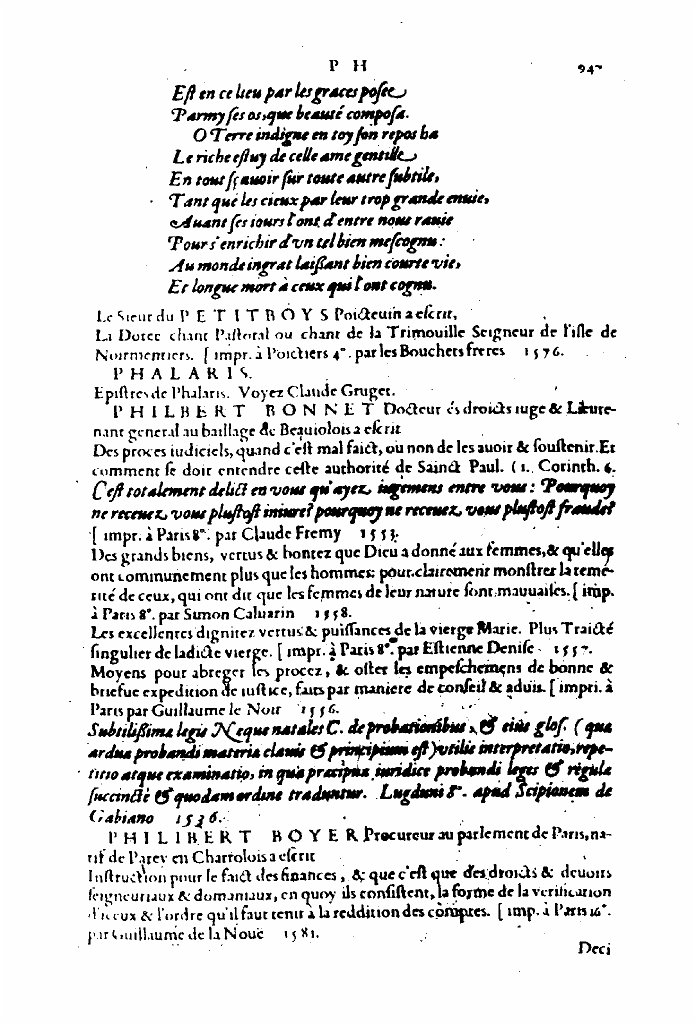 P H 947
Eſt en ce lieu par les graces poſee
Parmy ſes os, que beauté compoſa.
O Terre indigne en toy ſon repos ha
Le riche eſtuy de celle ame gentille,
En tout ſçauoir ſur toute autre ſubtile,
Tant que les cieux par leur trop grande enuie,
Auant ſes iours l'ont d'entre nous rauie
Pour s'enrichir d'vn tel bien meſcognu:
Au monde ingrat laiſſant bien courte vie,
Et longue mort à ceux qui l'ont cognu.
Le Sieur du PETITBOYS Poicteuin a eſcrit,
La Doree chant Paſtoral ou chant de la Trimouille Seigneur de l'iſle de
Noirmentiers. [ impr. à Poictiers 4°. par les Bouchets freres 1576.
PHALARIS.
Epiſtres de Phalaris. Voyez Claude Gruget.
PHILBERT BONNET Docteur és droicts iuge & Lieute-
nant general au baillage de Beauiolois a eſcrit
Des proces iudiciels, quand c'eſt mal faict, ou non de les auoir & ſouſtenir. Et
comment ſe doit entendre ceſte authorité de Sainct Paul. (1. Corinth. 6.
C'eſt totalement delict en vous qu'ayez iugemens entre vous: Pourquoy
ne receuez vous pluſtoſt iniure? pourquoy ne receuez vous pluſtoſt fraude?
[ impr. à Paris 8°. par Claude Fremy 1553.
Des grands biens, vertus & bontez que Dieu a donné aux femmes, & qu'elles
ont communement plus que les hommes: pour clairement monſtrer la teme-
rité de ceux, qui ont dit que les femmes de leur nature ſont mauuaiſes. [ imp.
à Paris 8°. par Simon Caluarin 1558.
Les excellentes dignitez vertus & puiſſances de la vierge Marie. Plus Traicté
ſingulier de ladicte vierge. [ impr. à Paris 8°. par Eſtienne Deniſe 1557.
Moyens pour abreger les procez, & oſter les empeſchemens de bonne &
briefue expedition de iuſtice, faits par maniere de conſeil & aduis. [ impri. à
Paris par Guillaume le Noir 1556.
Subtiliſſima legis Neque natales C. de probationibus, & eius gloſ. ( qua
ardua probandi materia clauis & principium eſt ) vtilis interpretatio, repe-
titio atque examinatio, in qua præcipuæ iuridice probandi leges & regulæ
ſuccinctè & quodam ordine traduntur. Lugduni 8°. apud Scipionem de
Gabiano 1536.
PHILIBERT BOYER Procureur au parlement de Paris, na-
tif de Parey en Charrolois a eſcrit
Inſtruction pour le faict des finances, & que c'eſt que des droicts & deuoirs
ſeigneuriaux & domaniaux, en quoy ils conſiſtent, la forme de la verification
d'iceux & l'ordre qu'il faut tenir à la reddition des comptes. [ imp. à Paris 16°.
par Guillaume de la Noüe 1581.
Deci